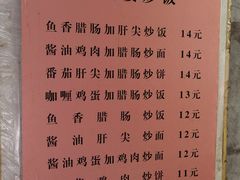 炒饭
鱼香腊肠加肝尖炒饭 14元
酱油鸡肉加肝尖炒面 14元
番茄肝尖加腊肠炒饭 14元
咖喱鸡蛋加腊肠炒饭 13元
鱼香腊肠炒饭 12元
酱油肝尖炒面 12元
酱油鸡蛋加鸡肉炒面 12元
鸡肉炒饭 11元